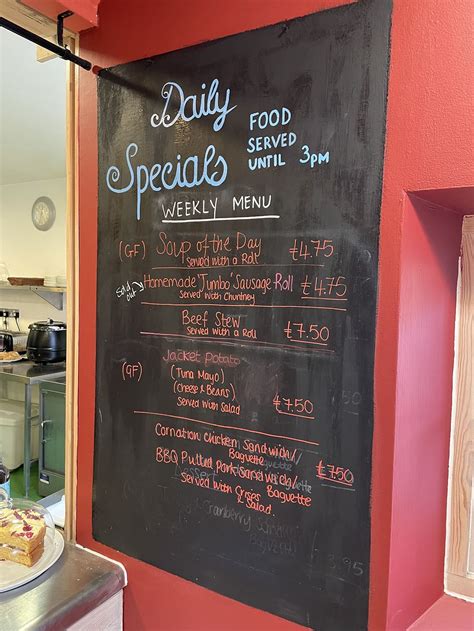 Daily
Specials
FOOD
SERVED
UNTIL 3PM
WEEKLY MENU
(GF) Soup of the Day £4.75
Served with a Roll
Sold out Homemade 'Jumbo' Sausage Roll £4.75
Served with Chuntney
Beef Stew £7.50
Served with a Roll
Jacket Potato
(GF) (Tuna Mayo)
(Cheese & Beans) £7.50
Served with Salad
Cornation Chicken Sandwich/
Baguette
BBQ Pulled Pork Sandwich/ £7.50
Baguette
Served with Crisps
& Salad
Cranberry
Baguette